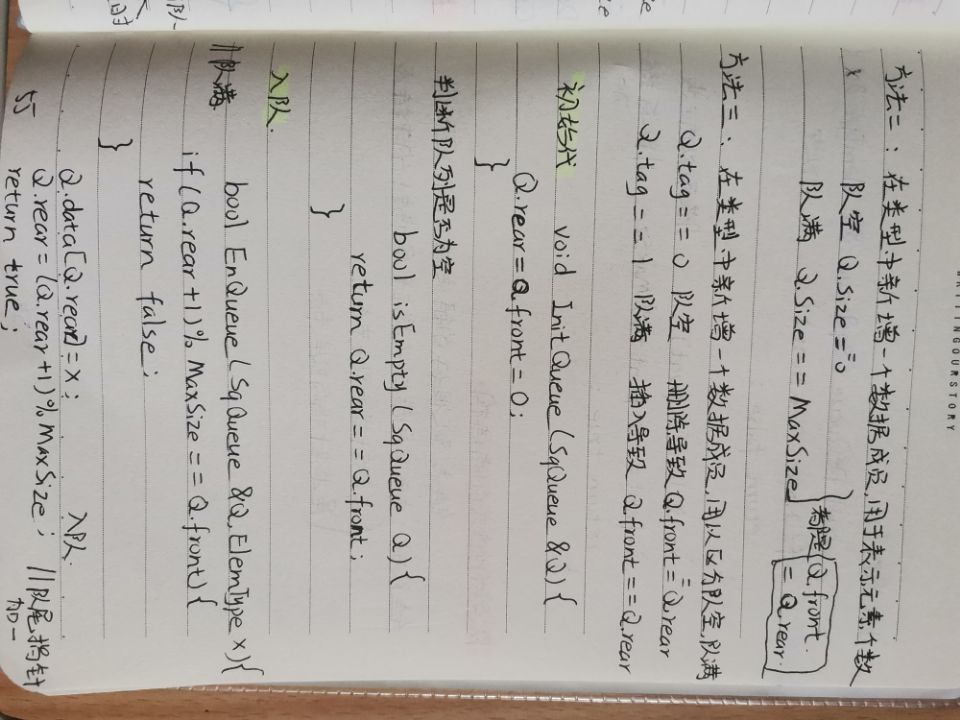 WRITINGOURSTORY
方法二：在类型中新增一个数据成员,用于表示元素个数
队空 Q.size==0
队满 Q.size==MaxSize } 都是(Q.front = Q.rear)
方法三：在类型中新增一个数据成员,用以区分队空,队满
Q.tag==0 队空 删除导致 Q.front==Q.rear
Q.tag==1 队满 插入导致 Q.front==Q.rear
初始化 void InitQueue(SqQueue &Q){
Q.rear=Q.front=0;
}
判断队列是否为空
bool isEmpty(SqQueue Q){
return Q.rear==Q.front;
}
入队.
bool EnQueue(SqQueue &Q,ElemType x){
//队满 if(Q.rear+1)%MaxSize==Q.front){
return false;
}
Q.data[Q.rear]=x; 入队.
Q.rear=(Q.rear+1)%MaxSize; //队尾指针加一
return true;
55